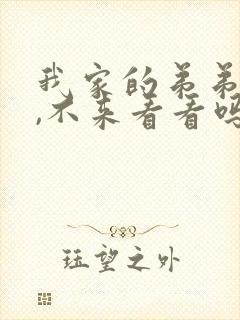 我家的弟弟
,不来看看吗
珏望之外